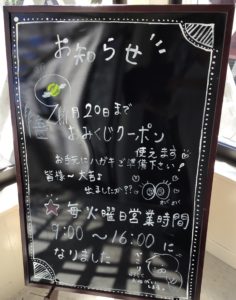 お知らせ
11月20日まで
おみくじクーポン
使えます
お手元にハガキご準備下さい!
皆様〜大吉は
出ましたか??
わくわく
毎火曜日営業時間
9:00〜16:00に
なりました